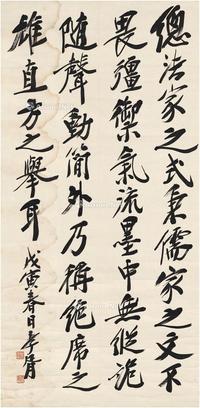 總法家之式秉儒家之文不
畏彊禦氣流墨中無縱詭
隨聲動簡外乃稱絕席之
雄直方之舉耳
戊寅春日孝胥